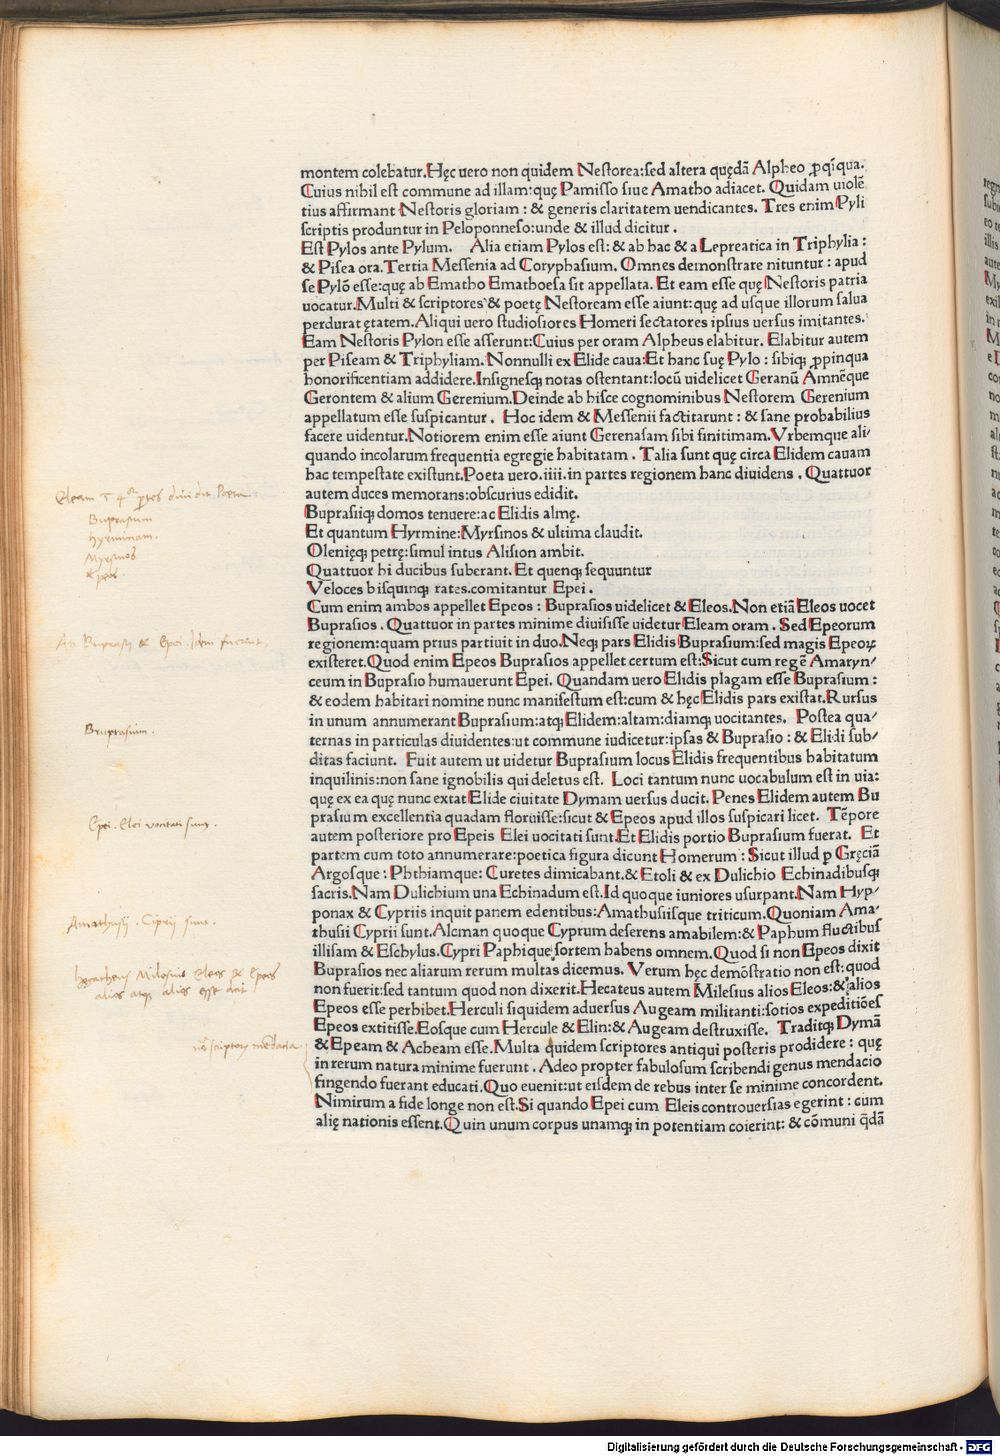 montem colebatur.Hęc uero non quidem Nestorea:sed altera quędā Alpheo ꝓq̄i qua.
Cuius nihil est commune ad illam:quę Pamisso siue Amatho adiacet. Quidam uiolē
tius affirmant Nestoris gloriam : & generis claritatem uendicantes. Tres enim Pyli
scriptis produntur in Peloponneso:unde & illud dicitur .
Est Pylos ante Pylum. Alia etiam Pylos est: & ab hac & a Lepreatica in Triphylia :
& Pisea ora.Tertia Messenia ad Coryphasium. Omnes demonstrare nituntur : apud
se Pylō esse:quę ab Ematho Emathoesa sit appellata. Et eam esse quę Nestoris patria
uocatur.Multi & scriptores & poetę Nestoream esse aiunt:quę ad usque illorum salua
perdurat ętatem.Aliqui uero studiosiores Homeri sectatores ipsius uersus imitantes.
Eam Nestoris Pylon esse asserunt:Cuius per oram Alpheus elabitur. Elabitur autem
per Piseam & Triphyliam. Nonnulli ex Elide caua:Et hanc suę Pylo : sibiq; ꝓpinqua
honorificentiam addidere.Insignesq; notas ostentant:locū uidelicet Geranū Amnēque
Gerontem & alium Gerenium.Deinde ab hisce cognominibus Nestorem Gerenium
appellatum esse suspicantur . Hoc idem & Messenii factitarunt : & sane probabilius
facere uidentur.Notiorem enim esse aiunt Gerenasam sibi finitimam.Vrbemque ali/
quando incolarum frequentia egregie habitatam . Talia sunt quę circa Elidem cauam
hac tempestate existunt.Poeta uero.iiii.in partes regionem hanc diuidens . Quattuor
autem duces memorans:obscurius edidit.
Buprasiiq; domos tenuere:ac Elidis almę.
Et quantum Hyrmine:Myrsinos & ultima claudit.
Olenięq; petrę:simul intus Alision ambit.
Quattuor hi ducibus suberant. Et quenq; sequuntur
Veloces bisquinq; rates.comitantur Epei .
Cum enim ambos appellet Epeos : Buprasios uidelicet & Eleos.Non etiā Eleos uocet
Buprasios . Quattuor in partes minime diuisisse uidetur Eleam oram . Sed Epeorum
regionem:quam prius partiuit in duo.Neq; pars Elidis Buprasium:sed magis Epeoꝝ
existeret.Quod enim Epeos Buprasios appellet certum est:Sicut cum regē Amaryn/
ceum in Buprasio humauerunt Epei. Quandam uero Elidis plagam esse Buprasium :
& eodem habitari nomine nunc manifestum est:cum & hęc Elidis pars existat.Rursus
in unum annumerant Buprasium:atq; Elidem:altam:diamq; uocitantes. Postea qua/
ternas in particulas diuidentes:ut commune iudicetur:ipsas & Buprasio : & Elidi sub/
ditas faciunt. Fuit autem ut uidetur Buprasium locus Elidis frequentibus habitatum
inquilinis:non sane ignobilis qui deletus est. Loci tantum nunc uocabulum est in uia:
quę ex ea quę nunc extat Elide ciuitate Dymam uersus ducit. Penes Elidem autem Bu
prasium excellentia quadam floruisse:sicut & Epeos apud illos suspicari licet. Tēpore
autem posteriore pro Epeis Elei uocitati sunt.Et Elidis portio Buprasium fuerat. Et
partem cum toto annumerare:poetica figura dicunt Homerum : Sicut illud p Gręciā
Argosque : Phthiamque: Curetes dimicabant.& Etoli & ex Dulichio Echinadibusq;
sacris.Nam Dulichium una Echinadum est.Id quoque iuniores usurpant.Nam Hyp/
ponax & Cypriis inquit panem edentibus:Amathusiisque triticum.Quoniam Ama/
thusii Cyprii sunt.Alcman quoque Cyprum deserens amabilem:& Paphum fluctibus
illisam & Eschylus.Cypri Paphique sortem habens omnem. Quod si non Epeos dixit
Buprasios nec aliarum rerum multas dicemus. Verum hęc demōstratio non est:quod
non fuerit:sed tantum quod non dixerit.Hecateus autem Milesius alios Eleos:& alios
Epeos esse perhibet.Herculi siquidem aduersus Augeam militanti:sotios expeditiōes
Epeos extitisse.Eosque cum Hercule & Elin:& Augeam destruxisse. Traditq; Dymā
& Epeam & Acheam esse.Multa quidem scriptores antiqui posteris prodidere : quę
in rerum natura minime fuerunt . Adeo propter fabulosum scribendi genus mendacio
fingendo fuerant educati.Quo euenit:ut eisdem de rebus inter se minime concordent.
Nimirum a fide longe non est.Si quando Epei cum Eleis controuersias egerint : cum
alię nationis essent.Quin unum corpus unamq; in potentiam coierint: & cōmuni q̄dā
Eleam 4or ptes diuidit Poeta
Buprasium
hyrminam.
Myrsinos
Epeos.
An Buprasii & Epei Idem fuerint.
Buprasium.
Epei. Elei vocitati sunt.
Amathusii. Ciprii sunt.
Milesius Eleos & Epeos
alios atq; alios esse ait
scriptorum mendacia
Digitalisierung gefördert durch die Deutsche Forschungsgemeinschaft - DFG